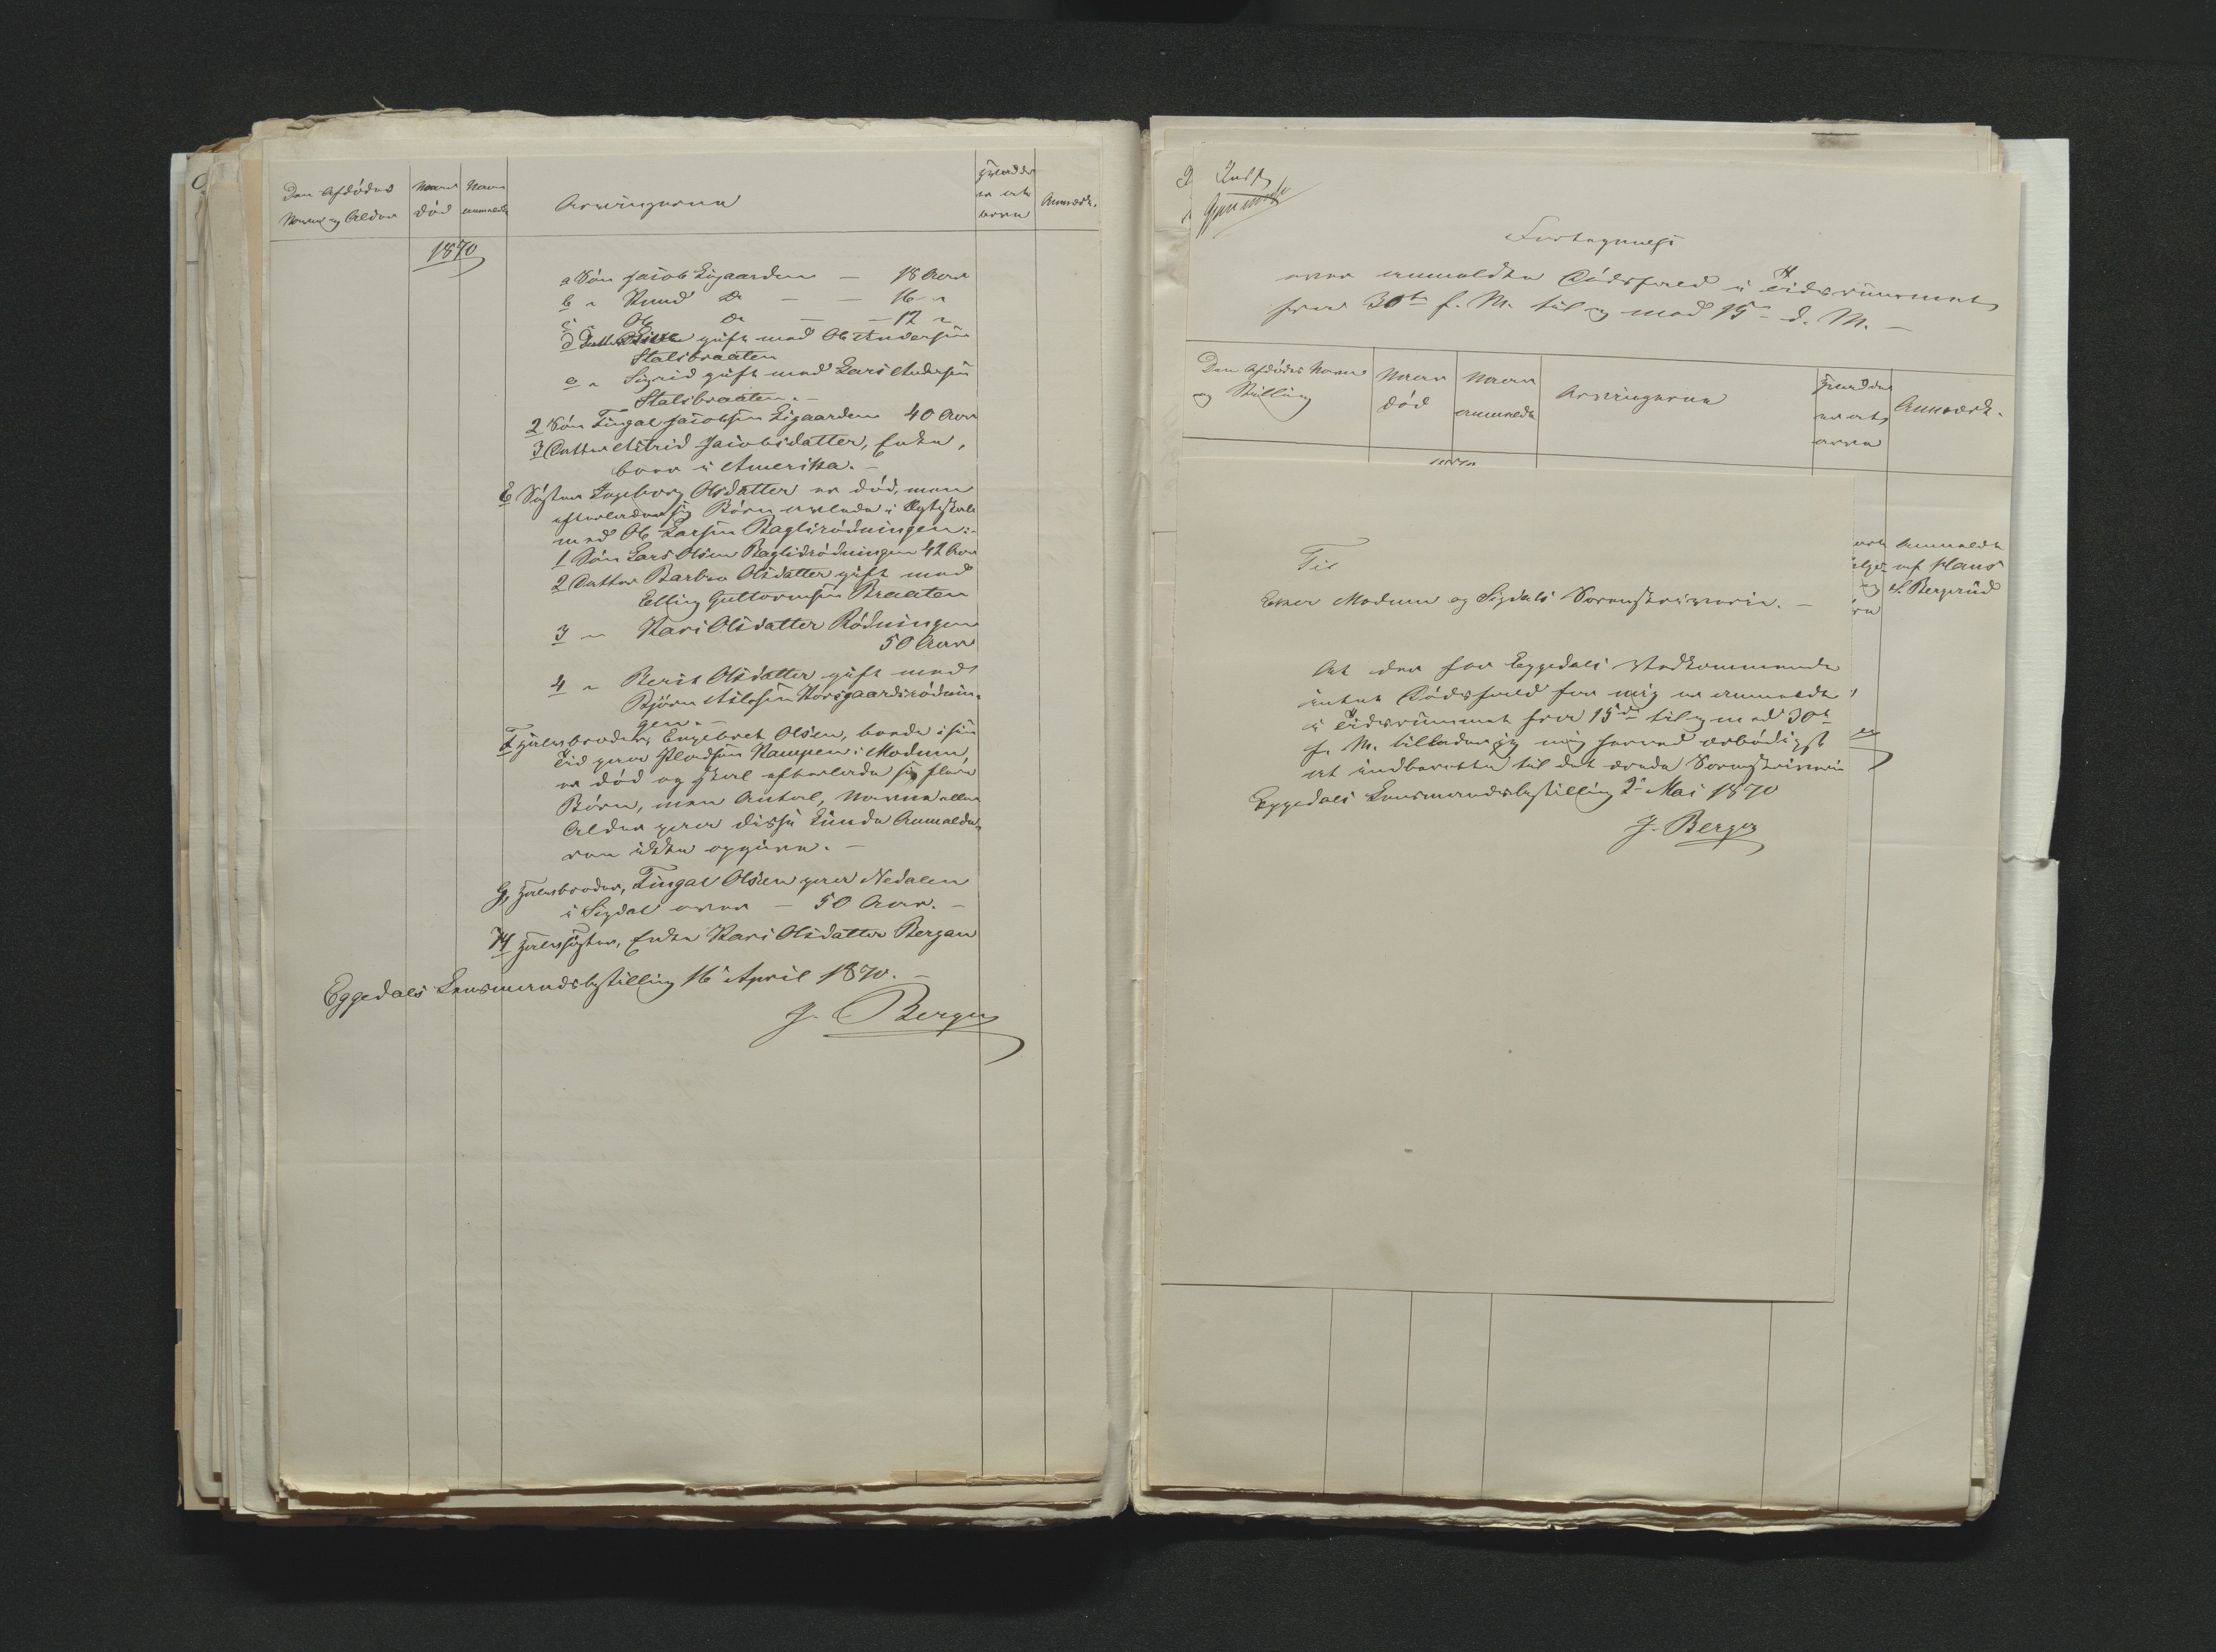 Den Afdødes
Navn og Alder
Naar
død
Naar
anmeldt
Arvingerne
Hvad der
er at
arve
Anmærk.
1870
a Søn Jacob Eigaarden — 18 Aar
b " Knud Do — — 16 "
c " Ole Do — — 12 "
d Datter gift med Ole Andersen
Stalsbraaten
e " Sigrid gift med Lars Andersen
Stalsbraaten. —
2 Søn Tingal Jacobsen Eigaarden 40 Aar
3 Datter Astrid Jacobsdatter, Enke,
boer i Amerika. —
E Søster Ingeborg Olsdatter er død, men
efterlader sig Børn avlede i Ægteskab
med Ole Larsen Baglirødningen:
1 Søn Lars Olsen Baglirødningen 42 Aar
2 Datter Barbro Olsdatter gift med
Elling Guttormsen Braaten
3 " Kari Olsdatter Rødningen
50 Aar
4 " Berit Olsdatter gift med
Bjørn Aslesen Horsgaardsrødnin-
gen. —
F Halvbroder, Engebret Olsen, boede i sin
Tid paa Pladsen Kampen i Modum,
er død og skal efterlade sig flere
Børn, men Antal, Navne eller
Alder paa disse kunde Anmelde-
ren ikke opgive. —
G, Halvbroder, Tingal Olsen paa Nedalen
i Sigdal over — 50 Aar. —
H Halvsøster, Enke Kari Olsdatter Bergan
Eggedals Lensmandsbestilling 16 April 1870. —
J. Berger
Fortegnelse
over anmeldte Dødsfald i Tidsrummet
fra 30te f. M. til og med 15 d. M. —
Den Afdødes Navn
og Stilling
Naar
død
Naar
anmeldt
Arvingerne
Hvad der
er at
arve
Anmærk.
Anmeldt
af Hans
S. Bergerud
Til
Eker Modum og Sigdals Sorenskriveri. —
At der for Eggedals Vedkommende
intet Dødsfald for mig er anmeldt
i Tidsrummet fra 15de til og med 30te
f. M. tillader jeg mig herved ærbødigst
at indberette til det ærede Sorenskriveri
Eggedals Lensmandsbestilling 2 Mai 1870
J. Berger